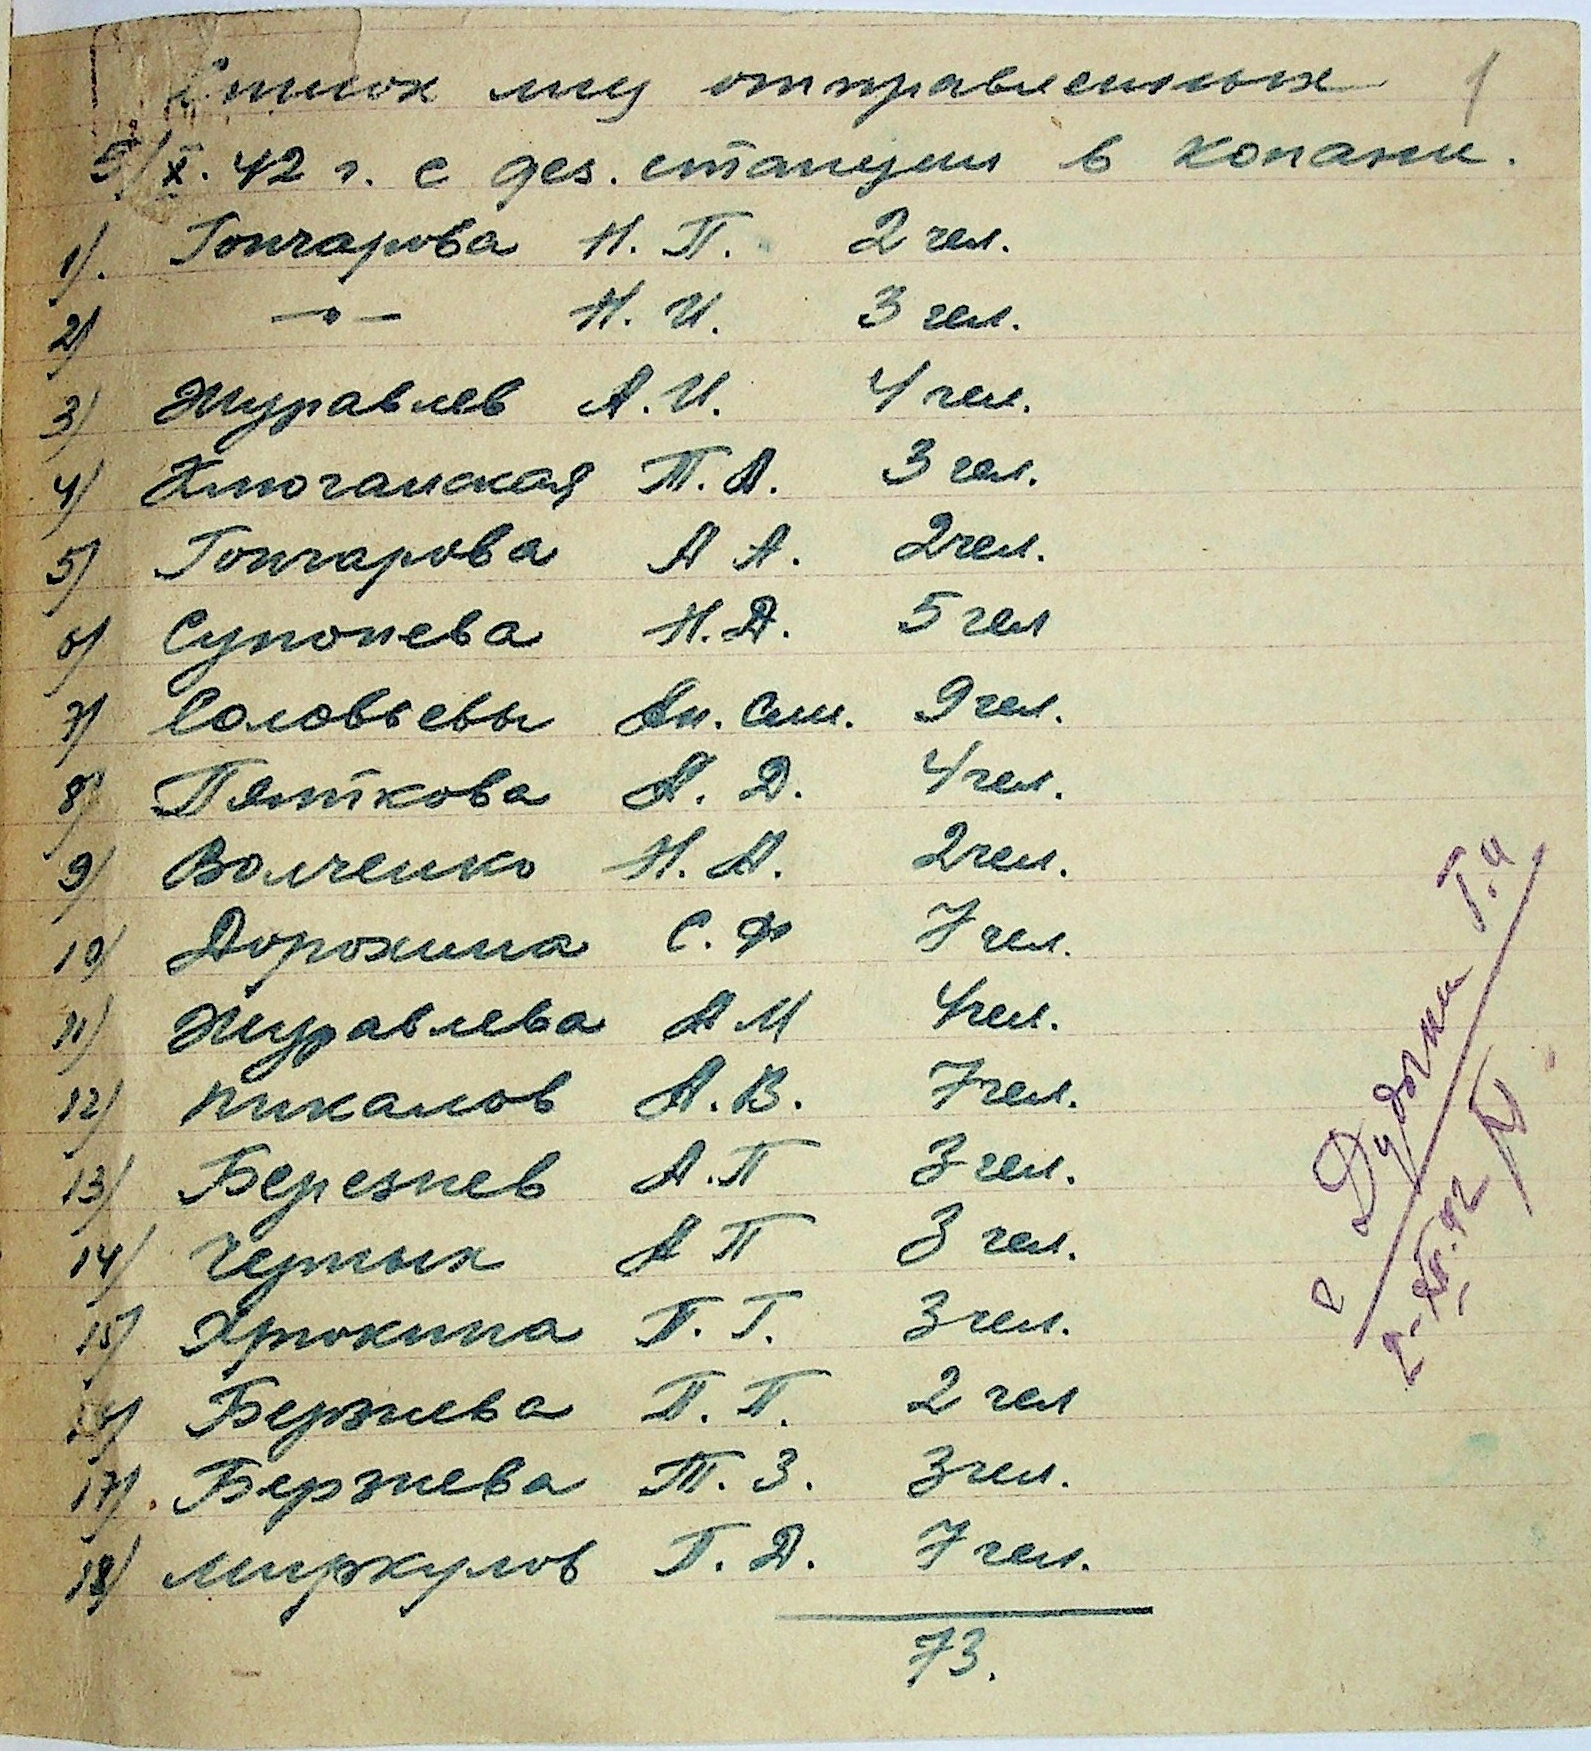 Список лиц отправленных 1
5/X. 42 г. с дез. станции в Копани.
1). Гончарова Н. П. 2 чел.
2) —„— Н. И. 3 чел.
3) Журавлев А. И. 4 чел.
4) Ключанская Т. А. 3 чел.
5) Гончарова А А. 2 чел.
6) Супонева Н. Д. 5 чел
7) Соловьевы Ан. Сим. 9 чел.
8) Пяткова А. Д. 4 чел.
9) Волченко Н. А. 2 чел.
10) Дорохина С. Ф 7 чел.
11) Журавлева А М 4 чел.
12) Пикалов А. В. 7 чел.
13) Березнев А. П 3 чел.
14) Черных А П 3 чел.
15) Хрюкина П. Г. 3 чел.
16) Берзнева П. П. 2 чел
17) Берзнева Т. З. 3 чел.
18) Миркулов Г. Д. 7 чел.
73.